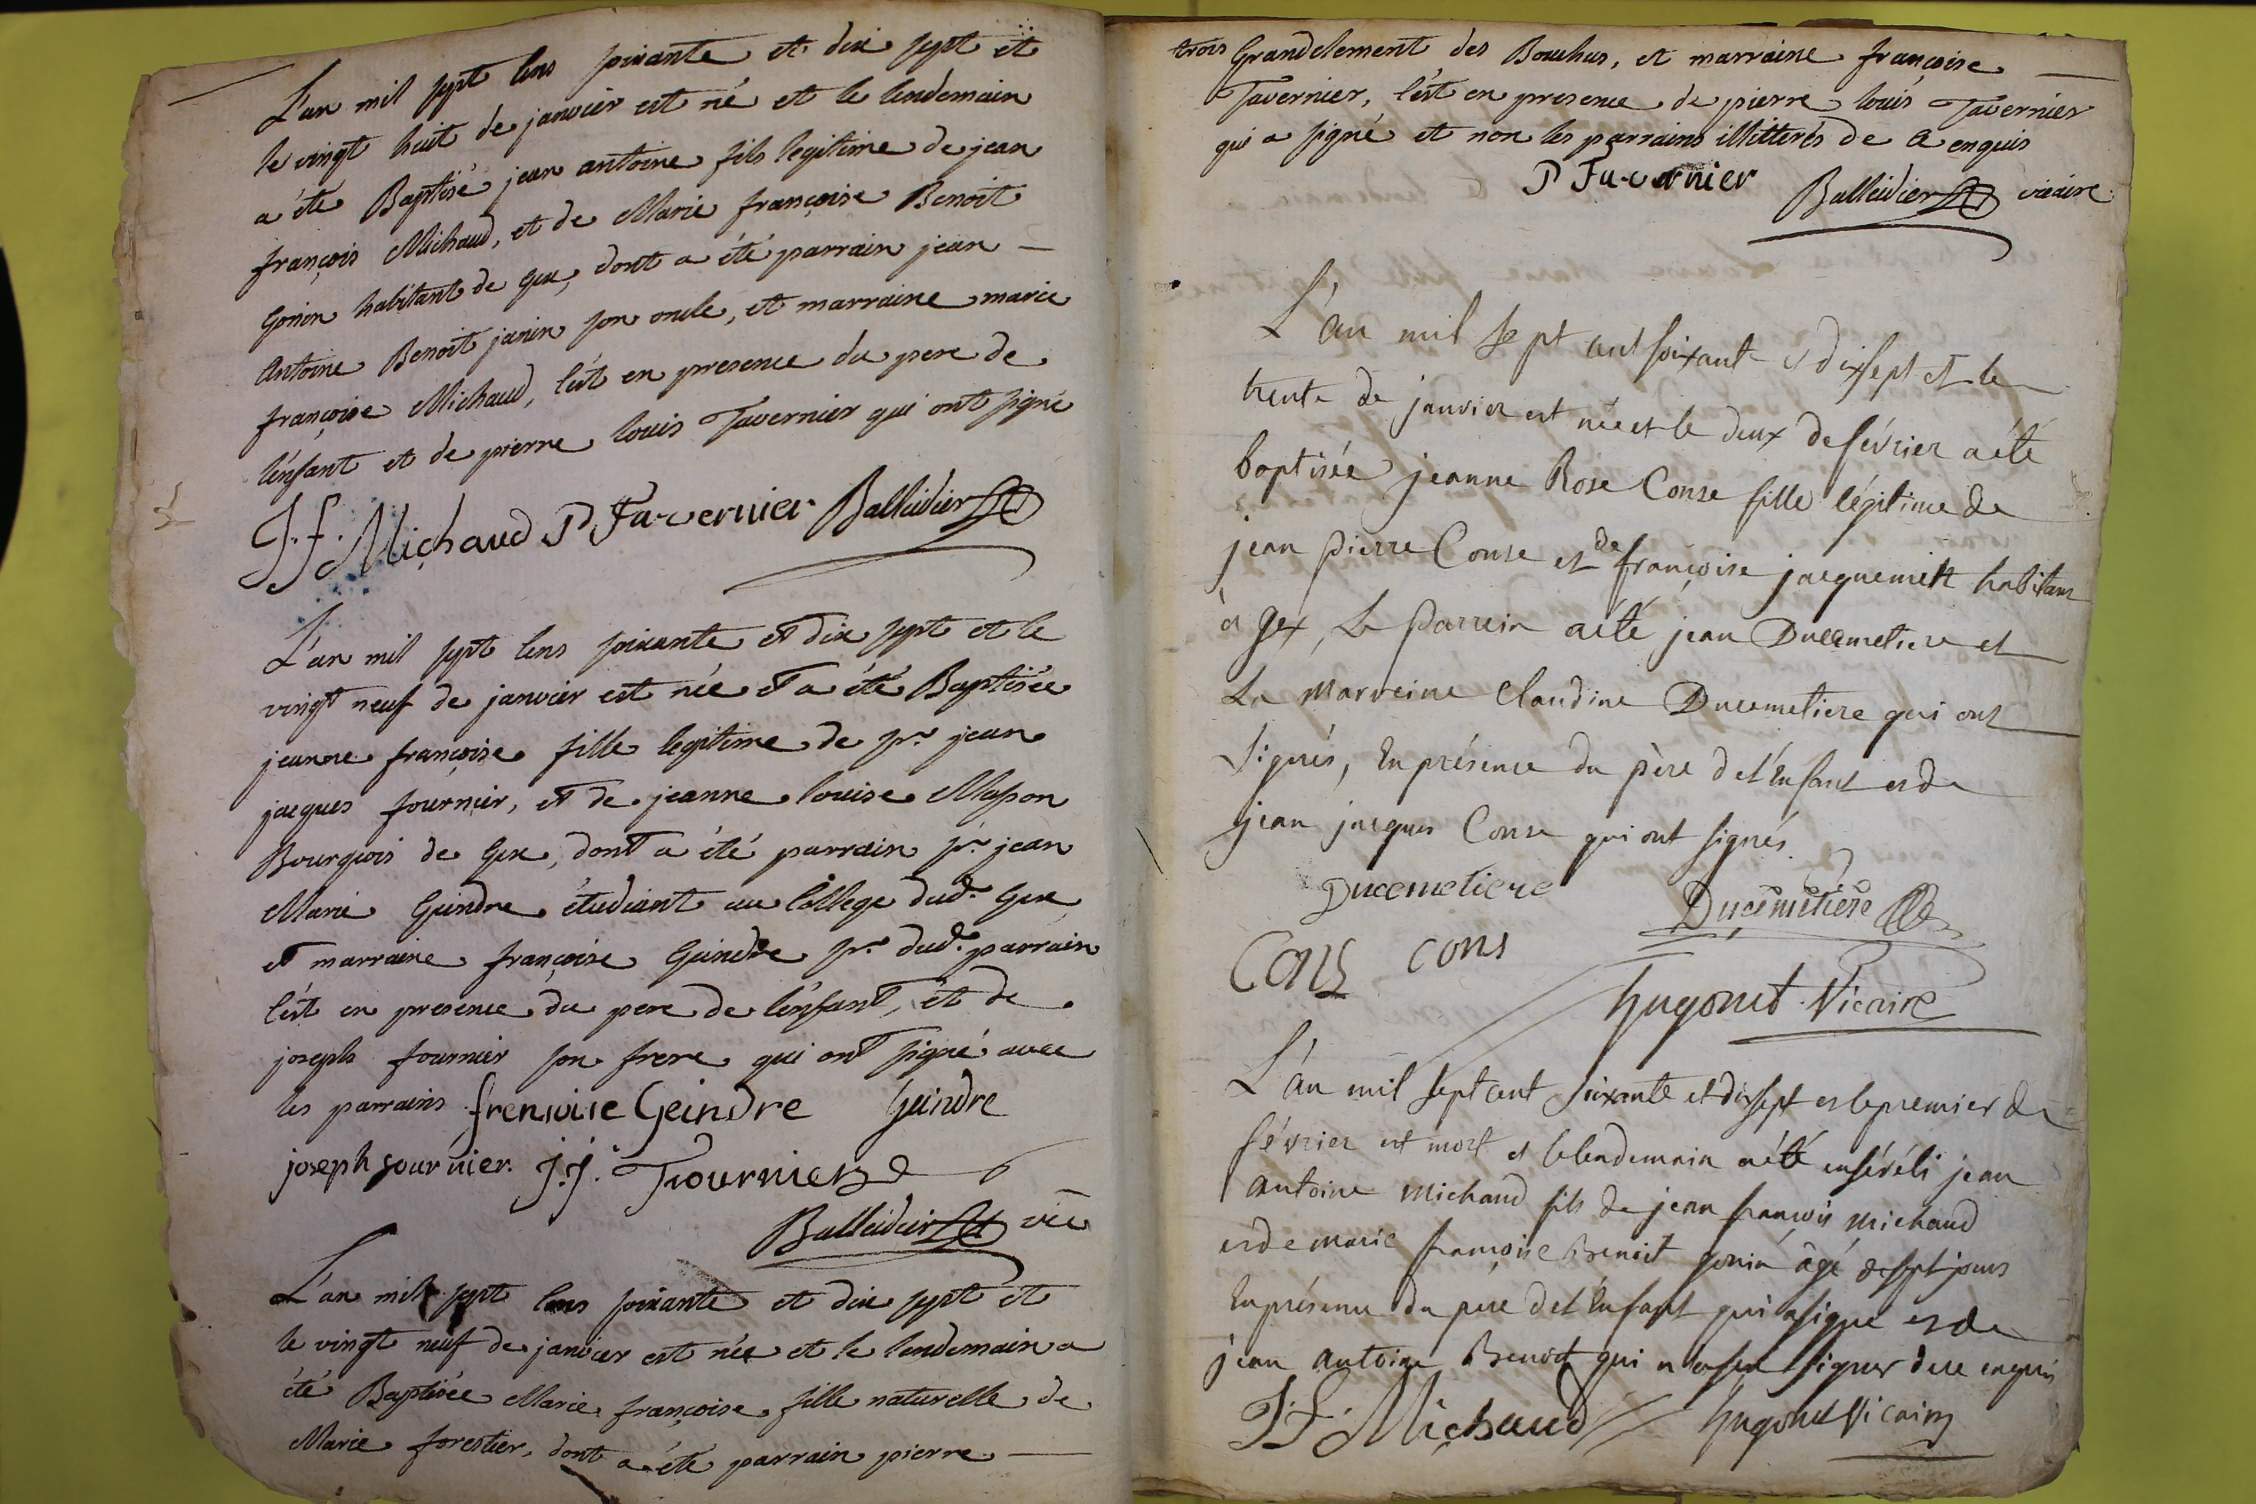 L'an mil sept cens soixante et dix sept et
le vingt huit de janvier est né et le lendemain
a été Baptisé jean antoine fils legitime de jean
françois Michaud, et de Marie françoise Benoit
Gonin habitant de Gex, dont a été parrain jean
Antoine Benoit janin son oncle, et marraine marie
françoise Michaud, c'est en presence du pere de
l'enfant et de pierre louis Tavernier qui ont signé
J. f. Michaud P Tavernier Balleidier
L'an mil sept cens soixante et dix sept et le
vingt neuf de janvier est née et a été Baptisée
jeanne françoise fille legitime de sr. jean
jacques fournier, et de jeanne louise Masson
Bourgeois de Gex, dont a été parrain sr. jean
Marie Geindre étudiant au College dud. Gex
et marraine françoise Geindre sr. dud. parrain
c'est en presence du pere de l'enfant, et de
joseph fournier son frere qui ont signé avec
les parrains frensoise Geindre Geindre
joseph fournier. J. J. Fournier
Balleidier vic
L'an mil sept cens soixante et dix sept et
le vingt neuf de janvier est née et le lendemain a
été Baptisée Marie françoise fille naturelle de
Marie forestier, dont a été parrain pierre
trois Grandclement des Bouchus, et marraine françoise
Tavernier, c'est en presence de pierre louis Tavernier
qui a signé et non les parrains illitterés de ce enquis
P Tavernier Balleidier vicaire
L'an mil sept cent soixante et dix sept et le
trente de janvier est née et le deux de février a été
baptisée jeanne Rose Conse fille légitime de
jean pierre Conse et de françoise jacquemett habitans
à gex, Le Parrein a été jean Ducemetiere et
La Marreine Claudine Ducemetiere qui ont
signés, En présence du père de l'Enfant et de
jean jacques Conse qui ont signés
Ducemetiere Ducemetiere
Cons cons
hugonet Vicaire
L'an mil sept cent soixante et dix sept et le premier de
février est mort et le lendemain a été enséveli jean
antoine Michaud fils de jean françois Michaud
et de marie françoise Benoit gonin âgé de sept jours
En présence du père de l'Enfant qui a signé et de
jean antoine Benoit qui n'a sçu signer de ce enquis
J. F. Michaud hugonet Vicaire